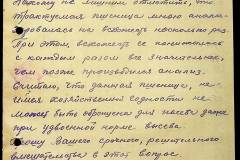 Нахожу не лишним отметить, что
трактуемая пшеница мною анали-
зировалась на всхожесть несколько раз.
При этом, всхожесть ее понижалась
с каждым разом все значительнее,
чем позже производился анализ.
Считаю, что данная пшеница, не-
имея хозяйственной годности не
может быть обращена для посева даже
при удвоенной норме высева.
Прошу Вашего срочного, решительного
вмешательства в этот вопрос